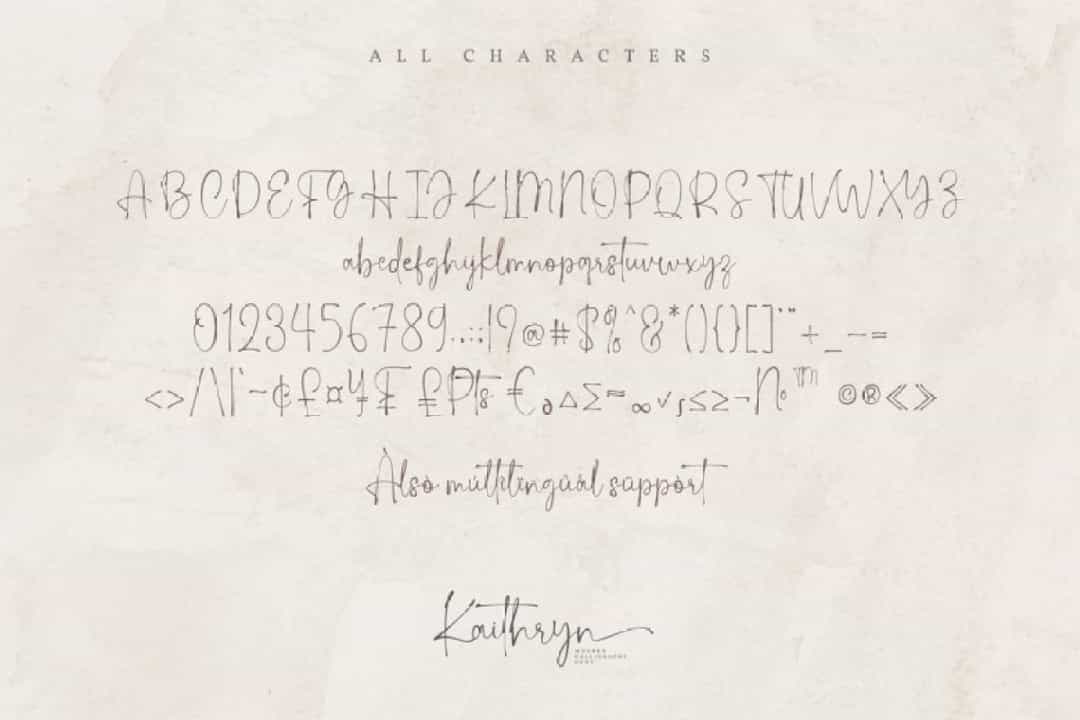 ALL CHARACTERS
ABCDEFGHIJKLMNOPQRSTUVWXYZ
abcdefghijklmnopqrstuvwxyz
0123456789.,:;!?@#$%^&*(){}[]'"+_-=
<>/\|`~¢£¤¥₣₤₧€∂∆∑≈∞√∫≤≥¬№™©®«»
Also multilingual support
Kaithryn
MODERN
CALLIGRAPHY
FONT